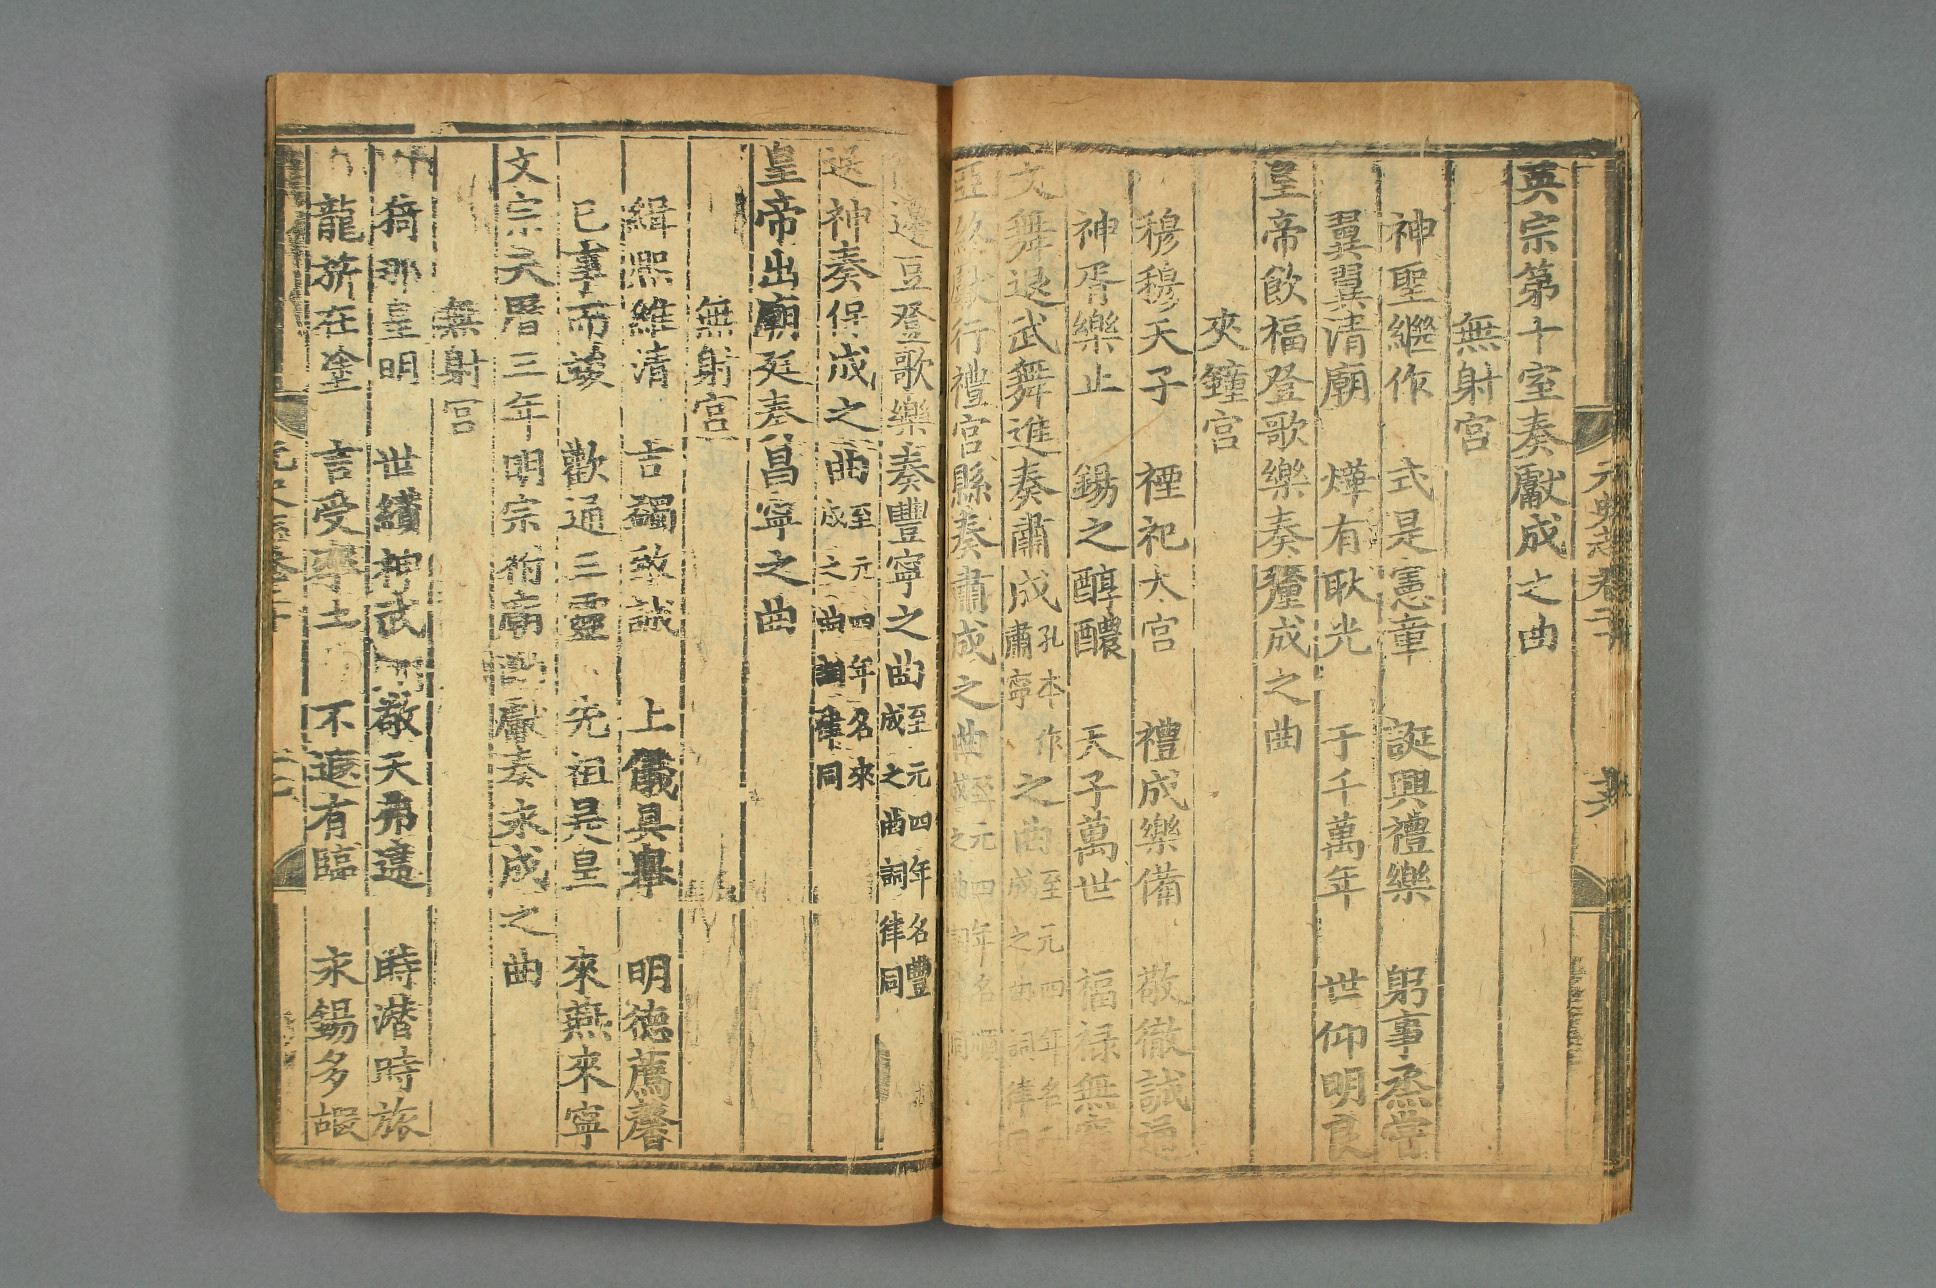 英宗第十室奏獻成之曲
無射宮
神聖繼作 式是憲章 誕興禮樂 躬事烝嘗
翼翼清廟 燁有耿光 于千萬年 世仰明良
皇帝飲福登歌樂奏釐成之曲
夾鐘宮
穆穆天子 禋祀太宮 禮成樂備 敬徹誠通
神胥樂止 錫之醇醲 天子萬世 福祿無窮
文舞退武舞進奏肅成孔本作肅寧之曲至元四年名 成之曲詞律同
亞終獻行禮宮縣奏肅成之曲至元四年名順成之曲詞律同
徹籩豆登歌樂奏豐寧之曲至元四年名豐成之曲詞律同
送神奏保成之曲至元四年名來成之曲詞律同
皇帝出廟廷奏昌寧之曲
無射宮
緝熙維清 吉蠲致誠 上儀具舉 明德薦馨
已事而竣 歡通三靈 先祖是皇 來燕來寧
文宗天曆三年明宗祔廟 獻奏永成之曲
無射宮
猗那皇明 世纘神武 敬天弗違 時潛時旅
龍旂在塗 言受率土 不遐有臨 永錫多嘏
元史志卷二十